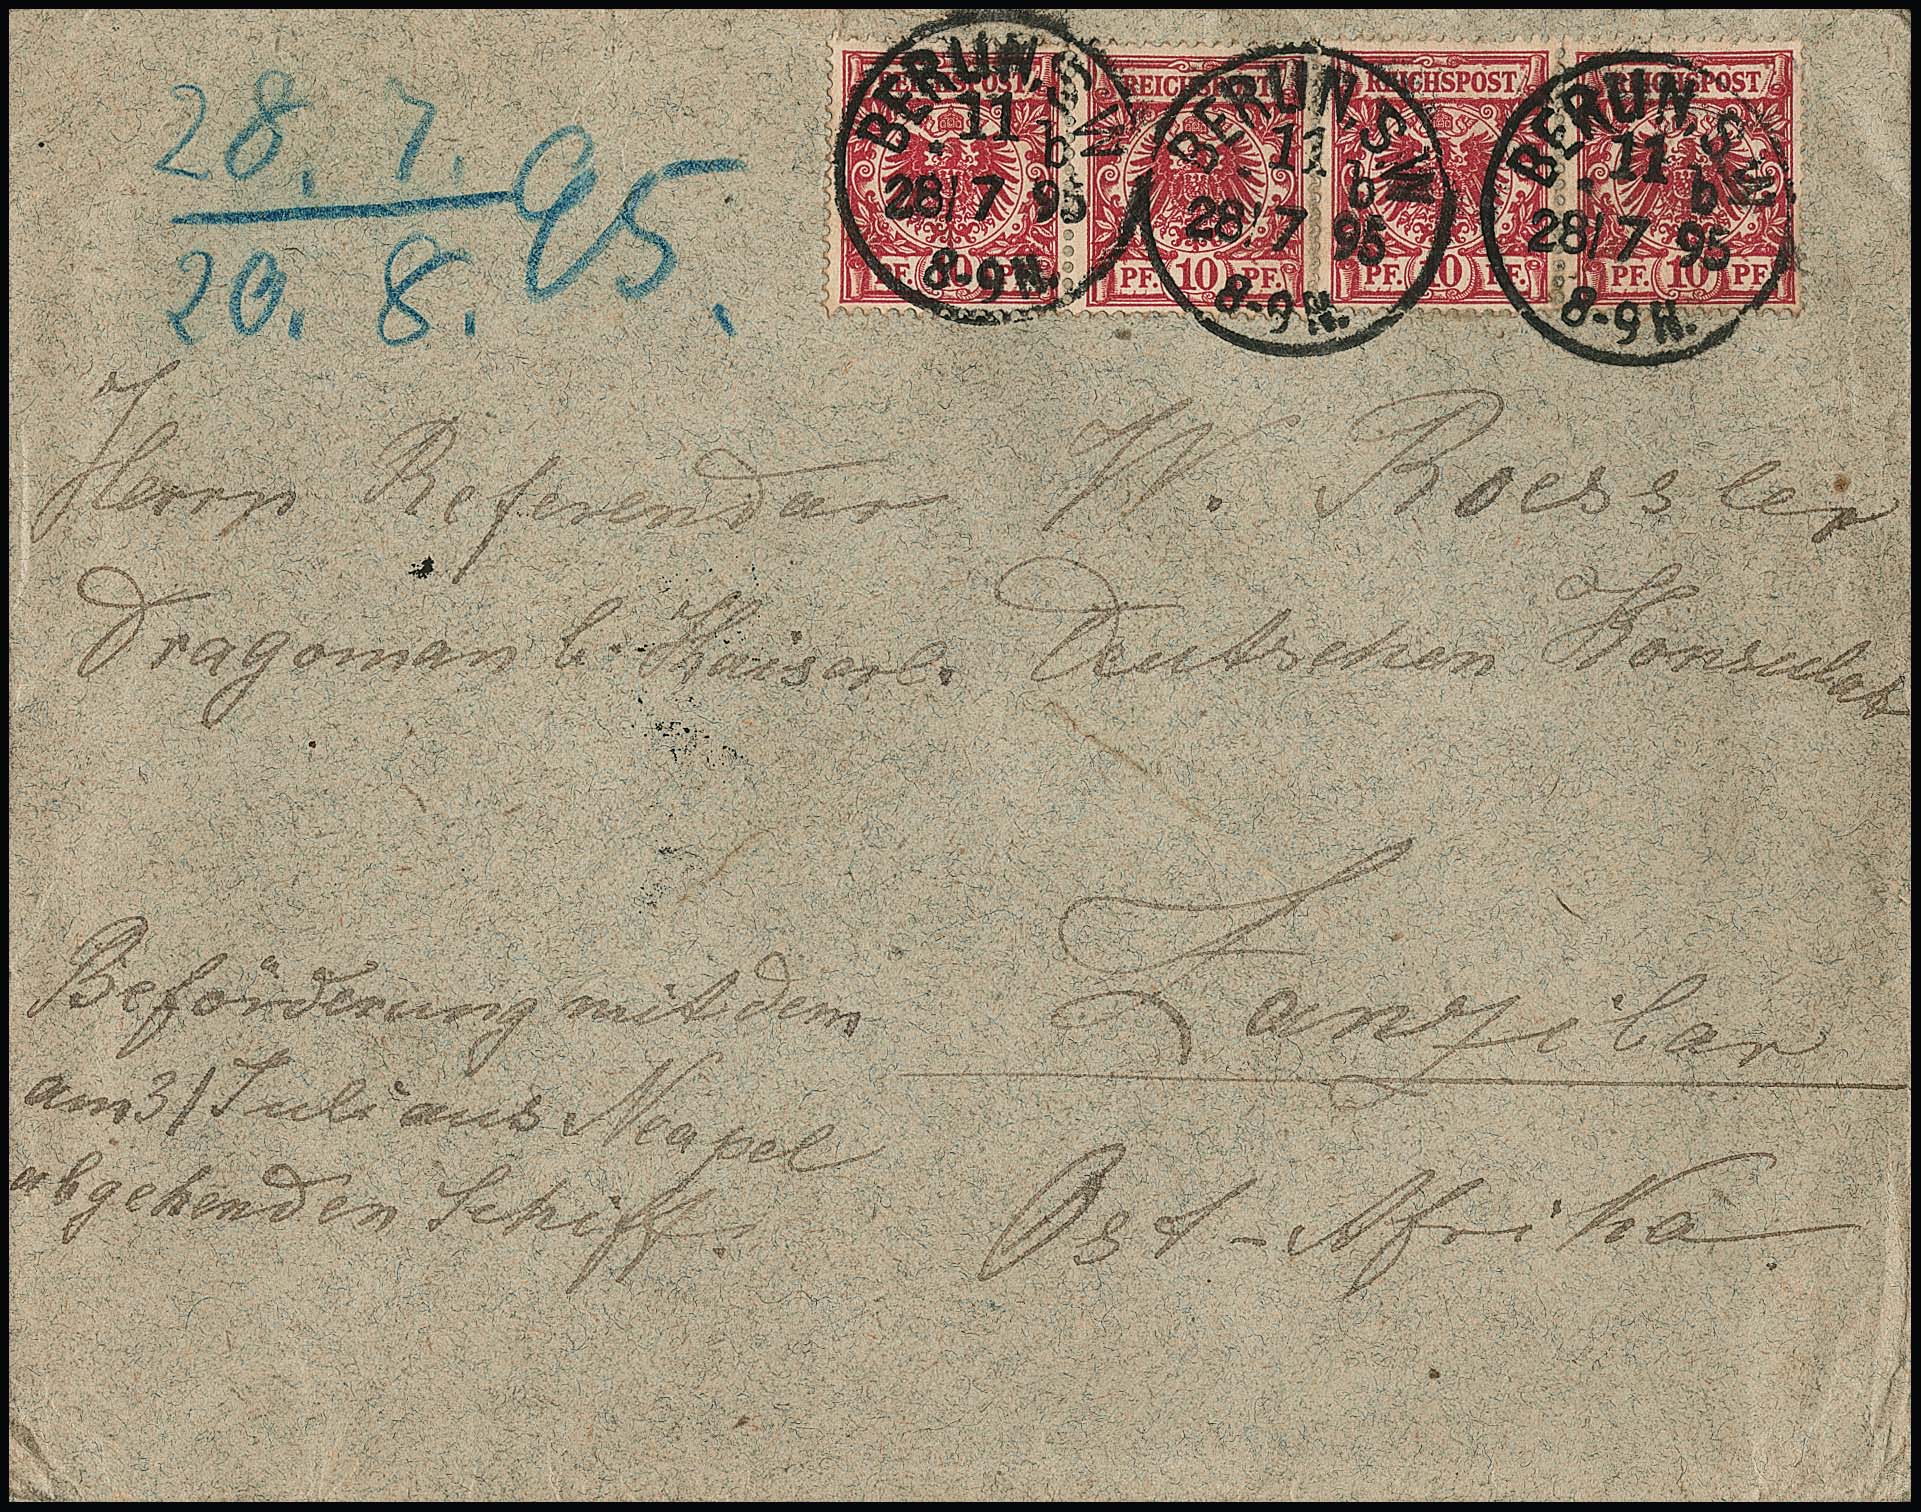 28. 7. 95.
20. 8.
REICHSPOST REICHSPOST REICHSPOST REICHSPOST
PF. 10 PF. PF. 10 PF. PF. 10 PF. PF. 10 PF.
BERLIN, S.W.
11 b
28/7 95
8-9 N.
BERLIN, S.W.
11 b
28/7 95
8-9 N.
BERLIN, S.W.
11 b
28/7 95
8-9 N.
Herrn Referendar W. Roessler
Dragoman b. Kaiserl. Deutschen Konsulat
Zanzibar
Ost-Afrika.
Beförderung mit dem
am 31 Juli aus Neapel
abgehenden Schiff.